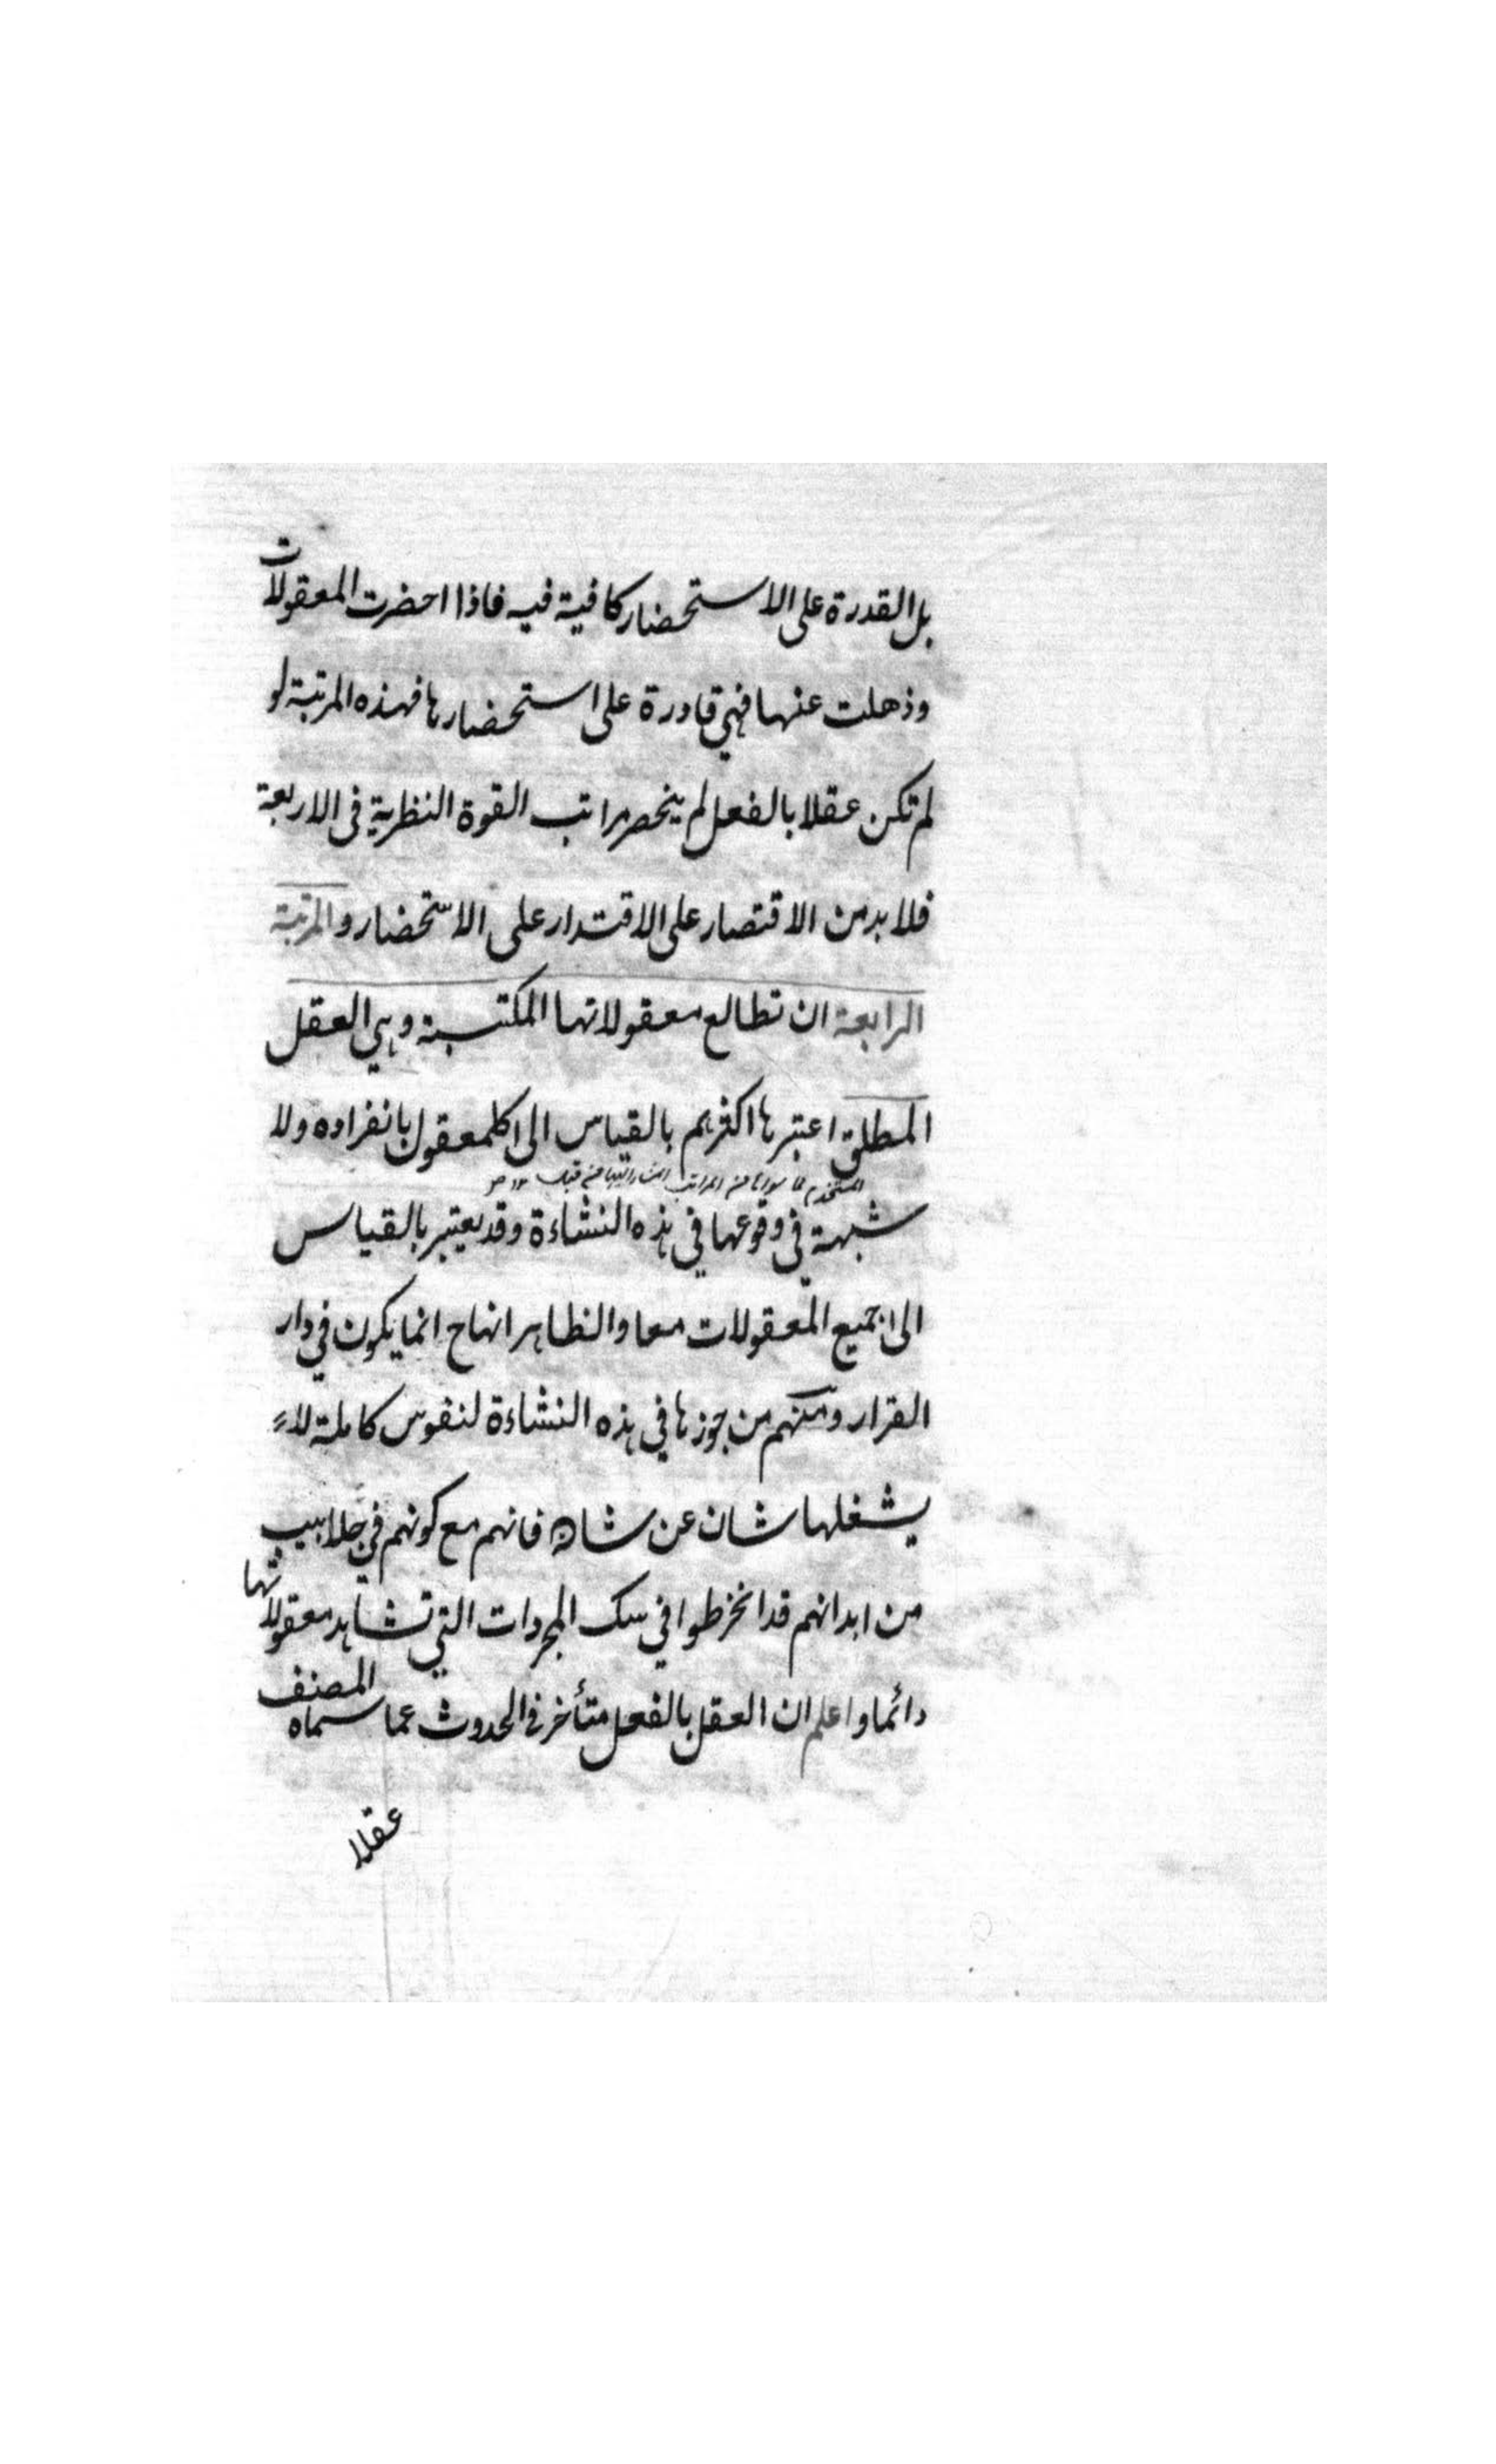 بل القدرة على الاستحضار كافية فيه فاذا احضرت المعقولات
وذهلت عنها فهي قادرة على استحضارها فهذه المرتبة لو
لم تكن عقلا بالفعل لم ينحصر مراتب القوة النظرية في الاربعة
فلا بد من الاقتصار على الاقتدار على الاستحضار والمرتبة
الرابعة ان تطالع معقولاتها المكتسبة وهي العقل
المطلق اعتبرها اكثرهم بالقياس الى كل معقول بانفراده ولا
شبهة في وقوعها في هذه النشاءة وقد يعتبر بالقياس
الى جميع المعقولات معا والظاهر انها ح انما يكون في دار
القرار ومنهم من جوزها في هذه النشاءة لنفوس كاملة لا
يشغلها شان عن شان فانهم مع كونهم في جلابيب
من ابدانهم قد انخرطوا في سلك المجردات التي تشاهد معقولاتها
دائما واعلم ان العقل بالفعل متأخر في الحدوث عما سماه المصنف
عقلا